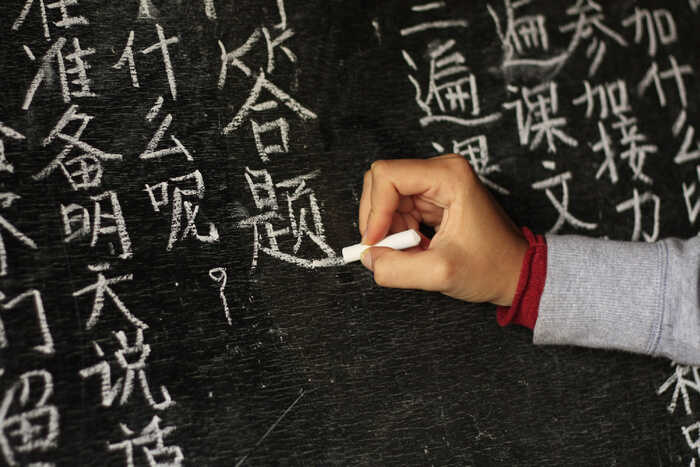 们留
准备明天说话
什么呢？
答题
二遍课
遍课文
参加接力
加什么